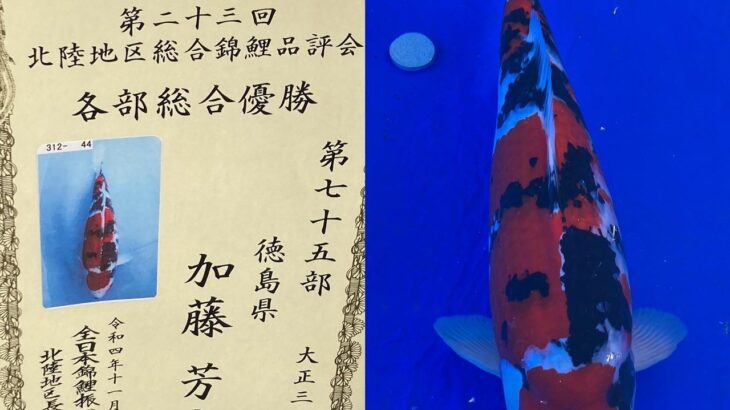 第二十三回
北陸地区総合錦鯉品評会
各部総合優勝
312- 44
第七十五部
大正三
徳島県
加藤 芳
令和四年十一月
全日本錦鯉振
北陸地区長